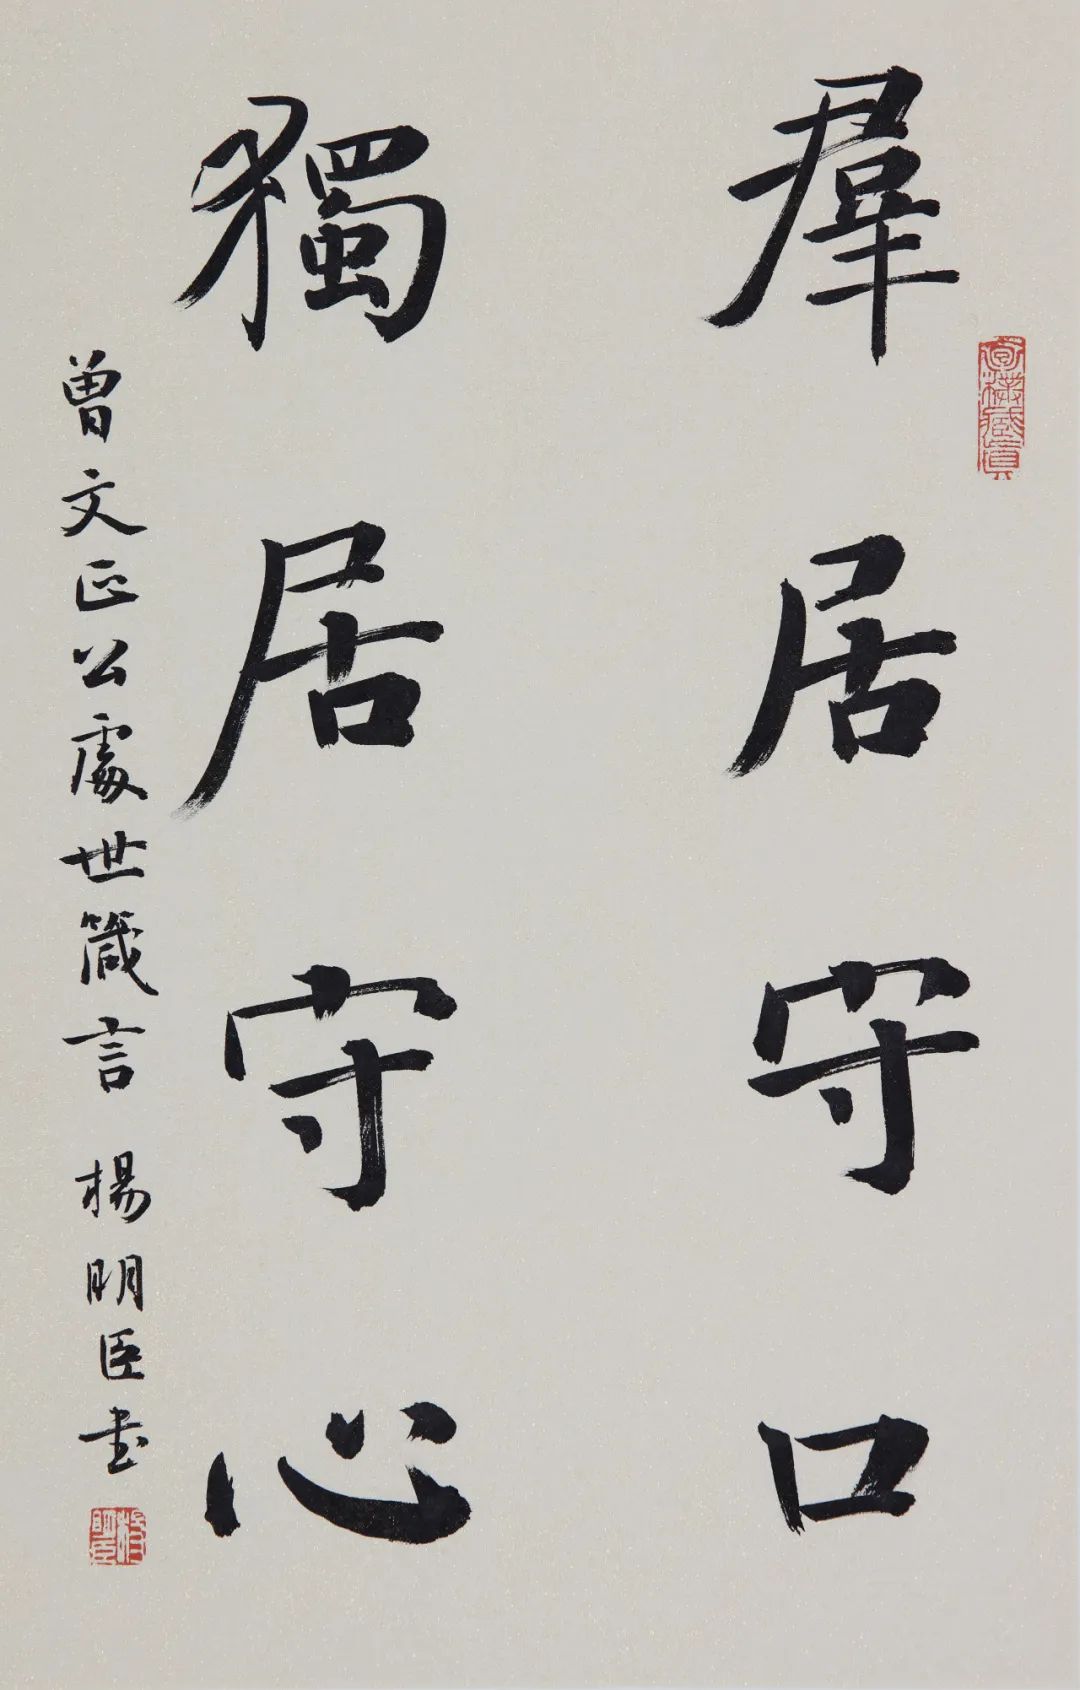 羣居守口
獨居守心
曾文正公處世箴言 楊明臣书